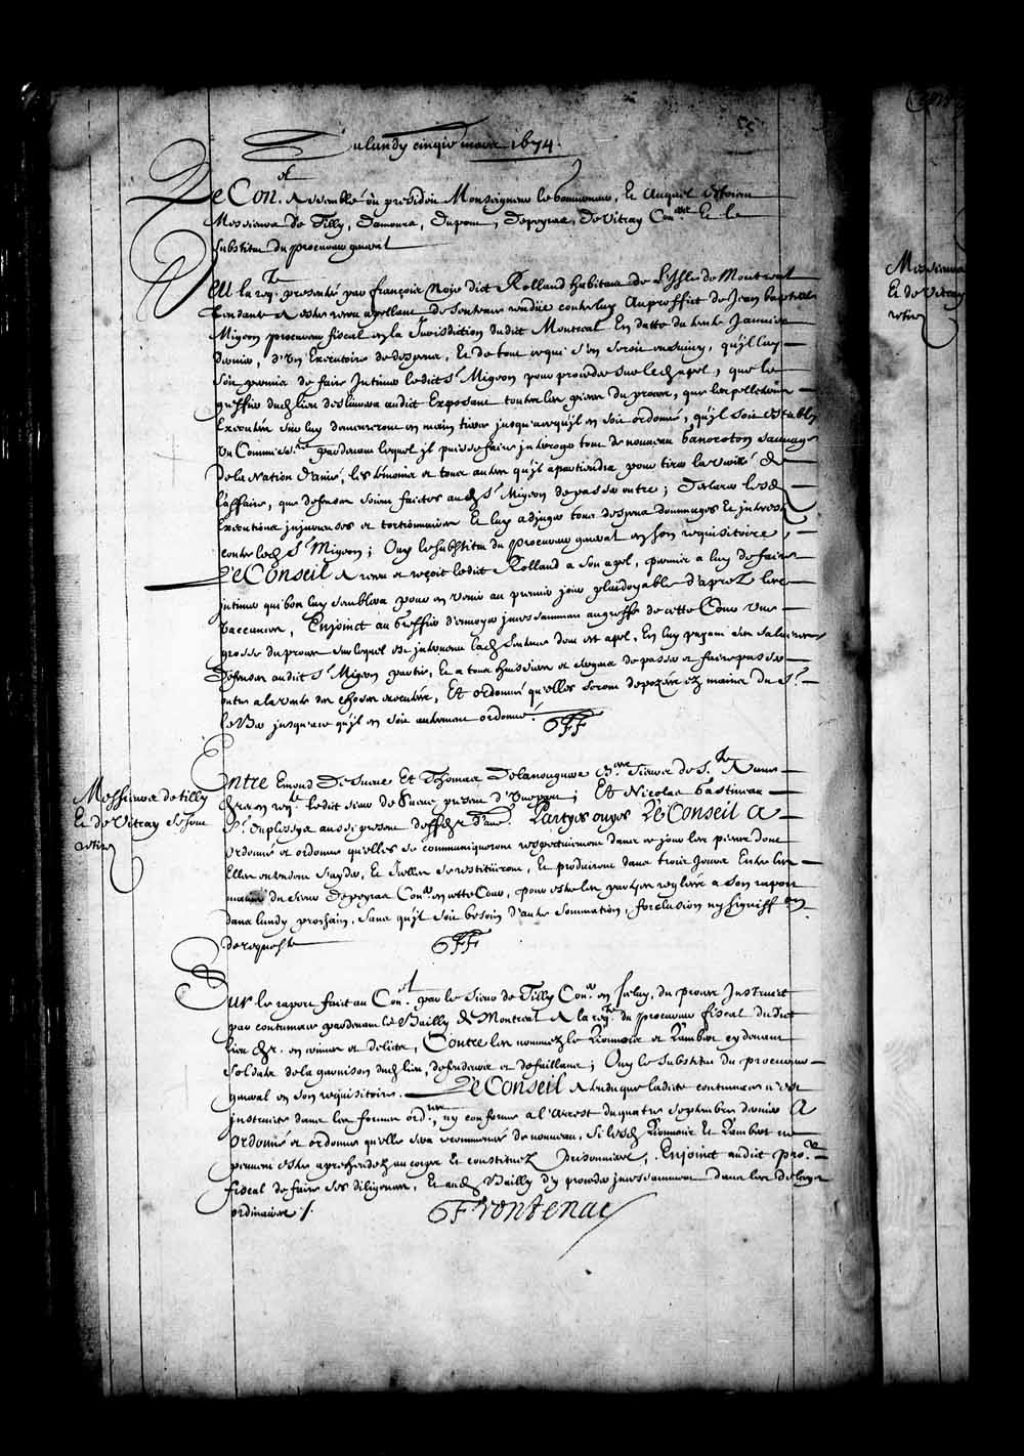 Du lundy cinqie mars 1674.
Le Con.el assemblé où presidoit Monseigneur le Gouverneur, Et auquel estoient
Messieurs de Tilly, Damours, Dupont, Depeyras, De Vitray Con.ers Et le
substitut du procureur general
VEU la req.te presentée par françois Noir dict Rolland habitant de L'Isle de Montreal
tendante a estre receu apellant de sentence rendüe contre luy au proffict de Jean baptiste
Migeon procureur fiscal en la Jurisdiction dudict Montreal En datte du trente Janvier
dernier, d'Un Executoire de despens, Et de tout ce qui s'en seroit ensuivy, qu'il luy
soit permis de faire Intimer ledict S.r Migeon pour proceder sur le dict apel, que le
greffier dud. lieu deslivrera audict Exposant toutes les pieces du procez, que les pelleteries
Executées sur luy demeureront en main tierce jusqu'a ce qu'il en soit ordonné, qu'il soit estably
Un Commiss.re pardevant lequel il puisse faire interoger tout de nouveau sauvage
de la Nation, les témoins et tous autres qu'il apartiendra pour tirer la verité de
l'affaire, que deffenses soient faictes aud. S.r Migeon de passer outre; Declarer lesd.
Executions injurieuses et tortionnaires Et luy adjuger tous despens dommages Et interests
contre led. S.r Migeon; Ouy le substitut du procureur general en son requisitoire,
Le Conseil A receu et reçoit ledict Rolland a son apel, permis a luy de faire
intimer qui bon luy semblera pour en venir au premier jour plaidoyable d'aprez les
vaccances, Enjoinct au Greffier d'envoyer incessamment au greffe de cette Cour Une
grosse du procez sur lequel est intervenu lad. sentence dont est apel, En luy payant son salaire
Deffenses audict S.r Migeon partie, Et a tous huissiers et sergens de passer et faire passer
outre a la vente des choses executées, Et ordonné qu'elles seront deposées ez mains du S.r
le Ber jusqu'a ce qu'il en soit autrement ordonné.
FF
Messieurs de tilly
Et de Vitray se sont
retirez
Entre Emond De Suene Et Thomas Delanouguere Sieur de S.te Anne
req.te ledict sieur de Suene present d'Une part; Et Nicolas Gastineau
S.r duplessys aussi present deffend.r d'autre. Partyes ouyes Le Conseil A
ordonné et ordonne qu'elles se communiqueront respectivement dans ce jour les pieces dont
Elles entendent s'ayder, Et Icelles se restitüeront, Et produiront dans trois jours Entre les
mains du sieur Depeyras Con.er en cette Cour, pour estre les partyes reglées a son raport
dans lundy prochain, sans qu'il soit besoin d'autre sommation, forclusion ny signiff.on
de requeste
FF
Sur le raport faict au Con.el par le Sieur de Tilly Con.er en Iceluy, du procez Instruict
par contumace pardevant le Bailly de Montreal A la req.te du procureur fiscal dudict
lieu en crimes et delicts, Contre les nommez le Lionnois et Lambert cy devant
soldats de la garnison dud. lieu, defendeurs et defaillans; Ouy le substitut du procureur
general en son requisitoire. Le Conseil Attendu que ladite contumace n'est
instruite dans les formes ord.res, ny conforme a l'arrest du quatre septembre dernier A
Ordonné et ordonne qu'elle sera recommencée de nouveau, si lesd. Lionnois Et Lambert ne
peuvent estre aprehendez au corps Et constituez Prisonniers, Enjoinct audict pro.r
fiscal de faire ses diligences, Et aud. Bailly d'y proceder incessamment dans les delays
ordinaires /.
Frontenac
Messieurs
Et de Vitray
retirez